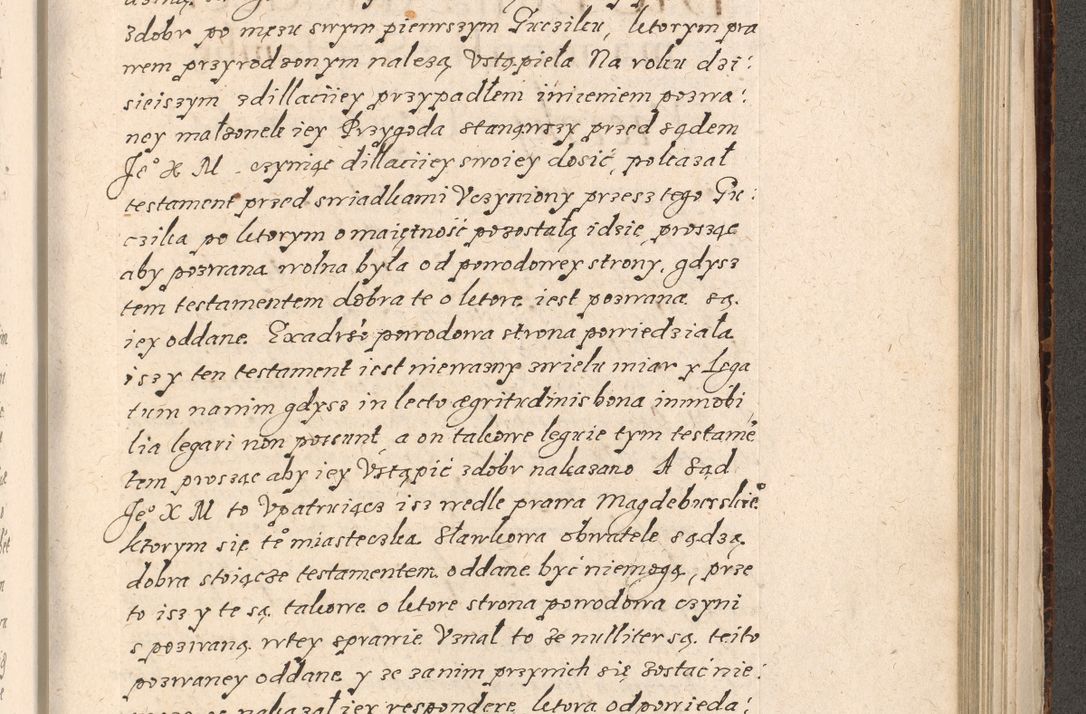 zdobr po męzu swym pierwszym Guczilku, ktorym pra
wem przyrodzonym nalezą Vstąpieła Na roku dzi:
sieiszym zdillaciiey przypadłem imieniem pozwa:
ney małzonek iey Przygoda stanąwszy przed sądem
Je° X M. czyniąc dillaciiey swoiey dosić, pokazał
testament przed swiadkami Vczyniony przesz tego Gu:
czilka po ktorym omaiętność pozostałą idzie, prosząc
aby pozwana wolna była od powodowey strony, gdysz
tem testamentem dobra te o ktore iest pozwana są
iey oddane. Exadrso powodowa strona powiedziała
isz y ten testament iest niewazny zwielu miar y Lega
tum nanim gdysz in lecto ægritudinis bona immobi
lia legari non possunt, a on takowe leguie tym testamē
tem prosząc aby iey Vstąpić zdobr nakazano A Sąd
Je° X M to Vpatruiącz isz wedle prawa Magdeburskie°
ktorym się te° miasteczka Sławkowa obwatele sądzą
dobra stoiącze testamentem oddane być niemogą, prze
to isz y te są takowe o ktore strona powodowa czyni
s pozwaną wtey sprawie Vznał to ze nulliter są teito
pozwaney oddane y ze zanim przynich się zostać nie:
nakazał iey respondere ktora odpowieda: